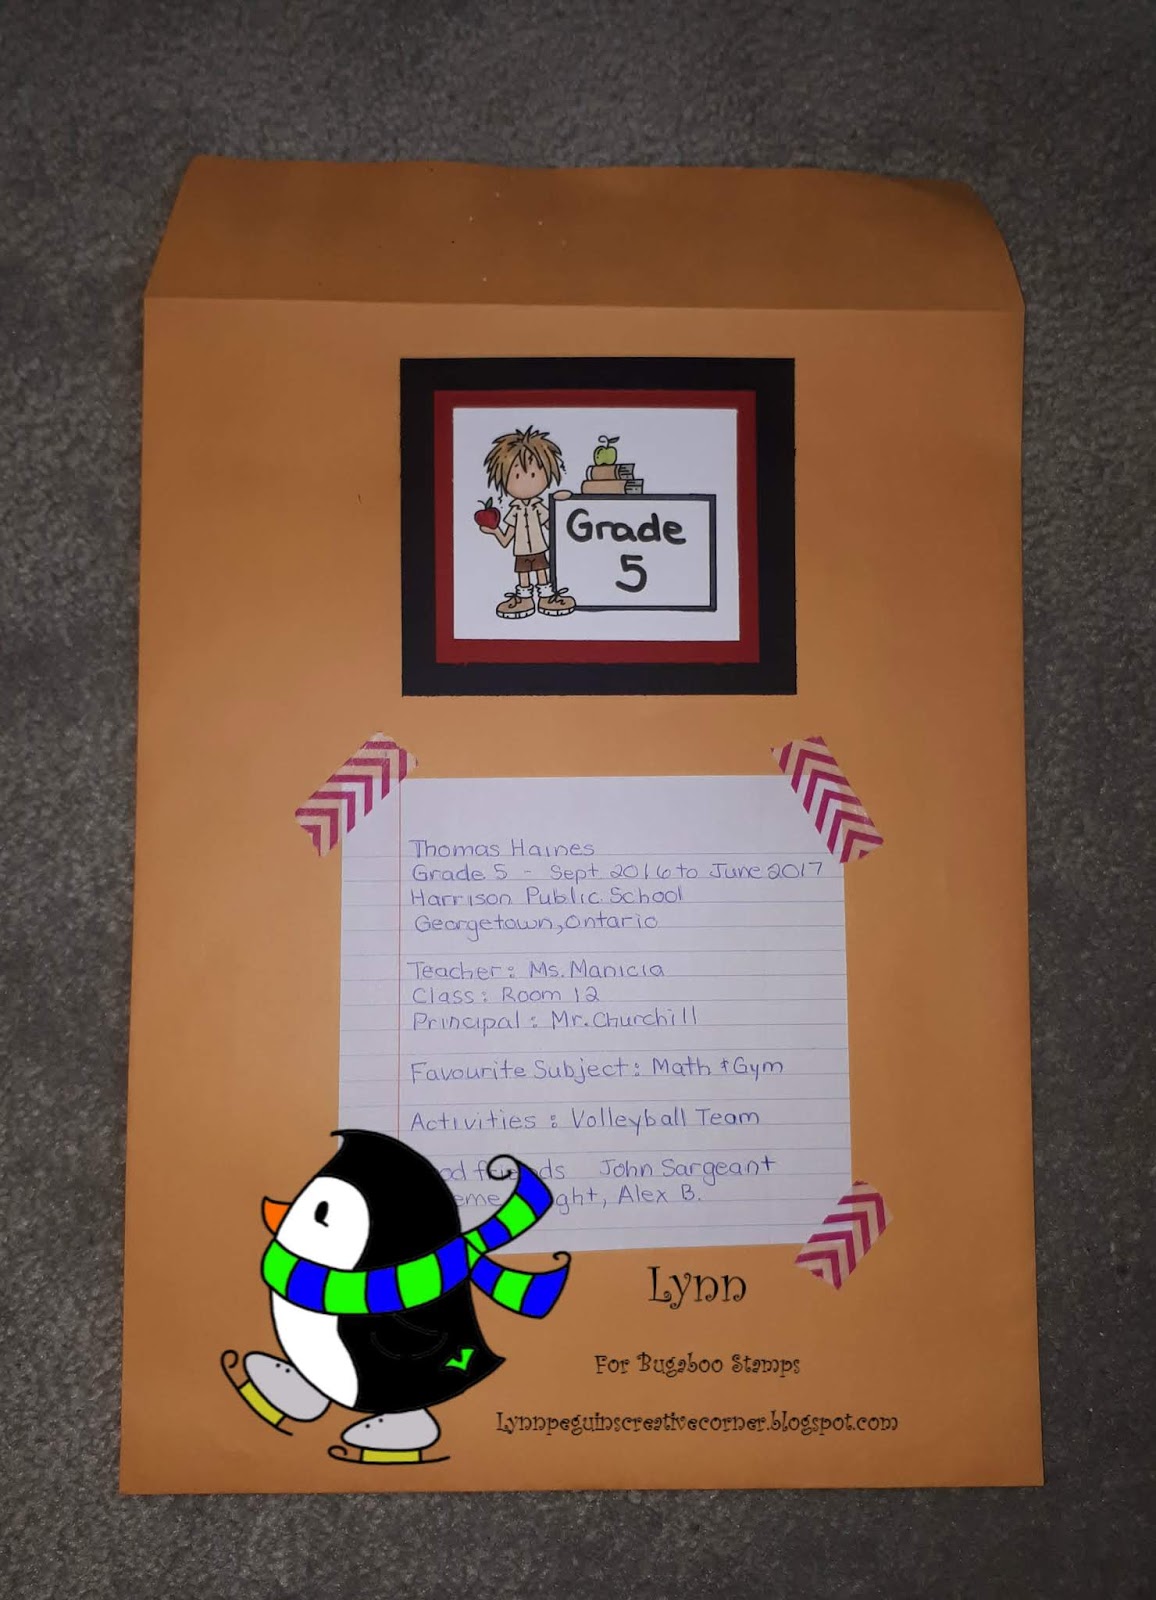 Grade
5
Thomas Haines
Grade 5 - Sept 2016 to June 2017
Harrison Public School
Georgetown, Ontario
Teacher: Ms. Manicia
Class: Room 12
Principal: Mr. Churchill
Favourite Subject: Math & Gym
Activities: Volleyball Team
John Sargeant
Alex B.
Lynn
For Bugaboo Stamps
Lynnpeguinscreativecorner.blogspot.com